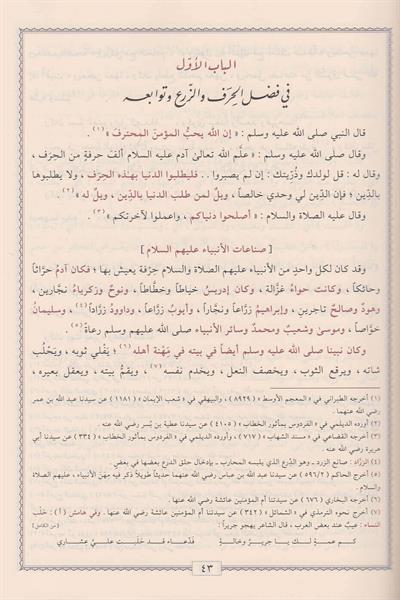 الباب الأوّل
في فضل الحِرَف والزّرع وتوابعه
قال النبي صلى الله عليه وسلم : « إن الله يحبُّ المؤمنَ المحترفَ »(١) .
وقال صلى الله عليه وسلم : « علَّم الله تعالىٰ آدم عليه السلام ألفَ حرفةٍ من الحِرَف ،
وقال له : قل لولدك وذُرّيتك : إن لم يصبروا .. فليطلبوا الدنيا بهذه الحِرَف ، ولا يطلبوها
بالدِّين ؛ فإن الدِّين لي وحدي خالصاً ، ويلٌ لمن طلب الدنيا بالدِّين ، ويل له »(٢) .
وقال عليه الصلاة والسلام : « أصلحوا دنياكم ، واعملوا لآخرتكم »(٣) .
[ صناعات الأنبياء عليهم السلام ]
وقد كان لكل واحدٍ من الأنبياء عليهم الصلاة والسلام حِرْفة يعيش بها ؛ فكان آدمُ حرَّاثاً
وحائكاً ، وكانت حواءُ غزَّالة ، وكان إدريسُ خياطاً وخطَّاطاً ، ونوحٌ وزكرياءُ نجَّارين ،
وهودٌ وصالحٌ تاجرين ، وإبراهيمُ زرَّاعاً ونجَّاراً ، وأيوبُ زرَّاعاً ، وداوودُ زرَّاداً(٤) ، وسليمانُ
خوَّاصاً ، وموسىٰ وشعيبٌ ومحمدٌ وسائر الأنبياء صلى الله عليهم وسلم رعاةً(٥) .
وكان نبينا صلى الله عليه وسلم أيضاً في بيته في مِهْنة أهله(٦) ؛ يَفْلي ثوبه ، ويَحْلُب
شاته ، ويرقع الثوب ، ويخصف النعل ، ويخدم نفسه(٧) ، ويقمُّ بيته ، ويعقل بعيره ،
(١) أخرجه الطبراني في « المعجم الأوسط » ( ٨٩٢٩ ) ، والبيهقي في « شعب الإيمان » ( ١١٨١ ) عن سيدنا عبد الله بن عمر
رضي الله عنهما .
(٢) أورده الديلمي في « الفردوس بمأثور الخطاب » ( ٤١٠٥ ) عن سيدنا عطية بن بُسر رضي الله عنه .
(٣) أخرجه القضاعي في « مسند الشهاب » ( ٧١٧ ) ، وأورده الديلمي في « الفردوس بمأثور الخطاب » ( ٣٣٤ ) عن سيدنا أبي
هريرة رضي الله عنه .
(٤) الزرَّاد : صانع الزرد ـ وهو الدِّرع الذي يلبسه المحارب ـ بإدخال حلق الدرع بعضها في بعض .
(٥) أخرج الحاكم ( ٥٩٦/٢ ) عن سيدنا عبد الله بن عباس رضي الله عنهما حديثاً طويلاً ذكر فيه مهن الأنبياء ، عليهم الصلاة
والسلام .
(٦) أخرجه البخاري ( ٦٧٦ ) عن سيدتنا أم المؤمنين عائشة رضي الله عنها .
(٧) أخرج نحوه الترمذي في « الشمائل » ( ٣٤٢ ) عن سيدتنا أم المؤمنين عائشة رضي الله عنها . وفي هامش ( أ ) : حَلْب
النساء : عيبٌ عند بعض العرب ، قال الشاعر يهجو جريراً :
كم عمةٍ لك يا جريرُ وخالةٍ فدعاءَ قد حَلَبت عليَّ عشاري
٤٣